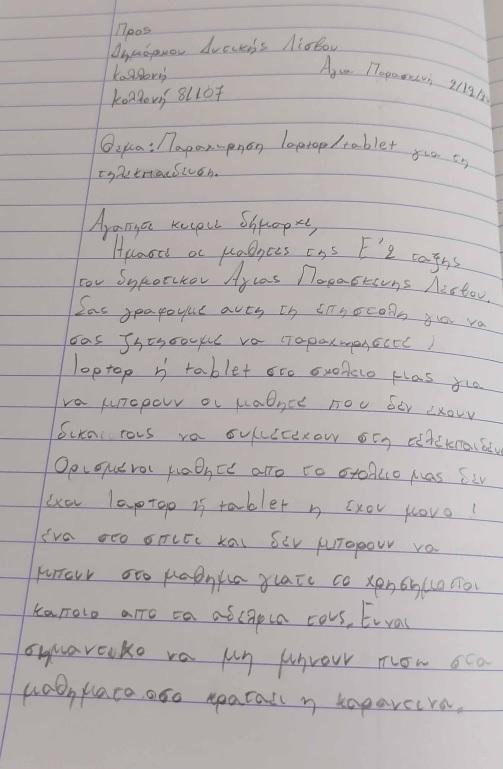 Προς
Δημάρχου Δυτικής Λέσβου
Καλλονή
Αγια Παρασκευή 9/12/2
Καλλονή 81107
Θεμα: Παραχωρηση laptop/tablet για τη
τηλεκπαιδευση.
Αγαπητε κυριε δήμαρχε,
Ημαστε οι μαθητες της Ε'2 ταξης
του δημοτικου Αγιας Παρασκευης Λεσβου.
Σας γραφουμε αυτη τη επηστολη για να
σας ζητησουμε να παραχωρησετε
laptop ή tablet στο σχολειο μας για
να μπορουν οι μαθητέ που δεν έχουν
δικαι τους να συμετέχουν στη τέλεκπαιδευ
Ορισμένοι μαθητέ απο το σχολειο μας δεν
έχου laptop ή tablet η έχου μονο
ένα στο σπιτι και δέν μπορουν να
μπουν στο μαθημα γιατι το χρησημοποι
καποιο απο τα αδέλφια τους. Ειναι
σημαντικο να μη μηνουν πισω στα
μαθηματα οσο κραταει η καραντινα.